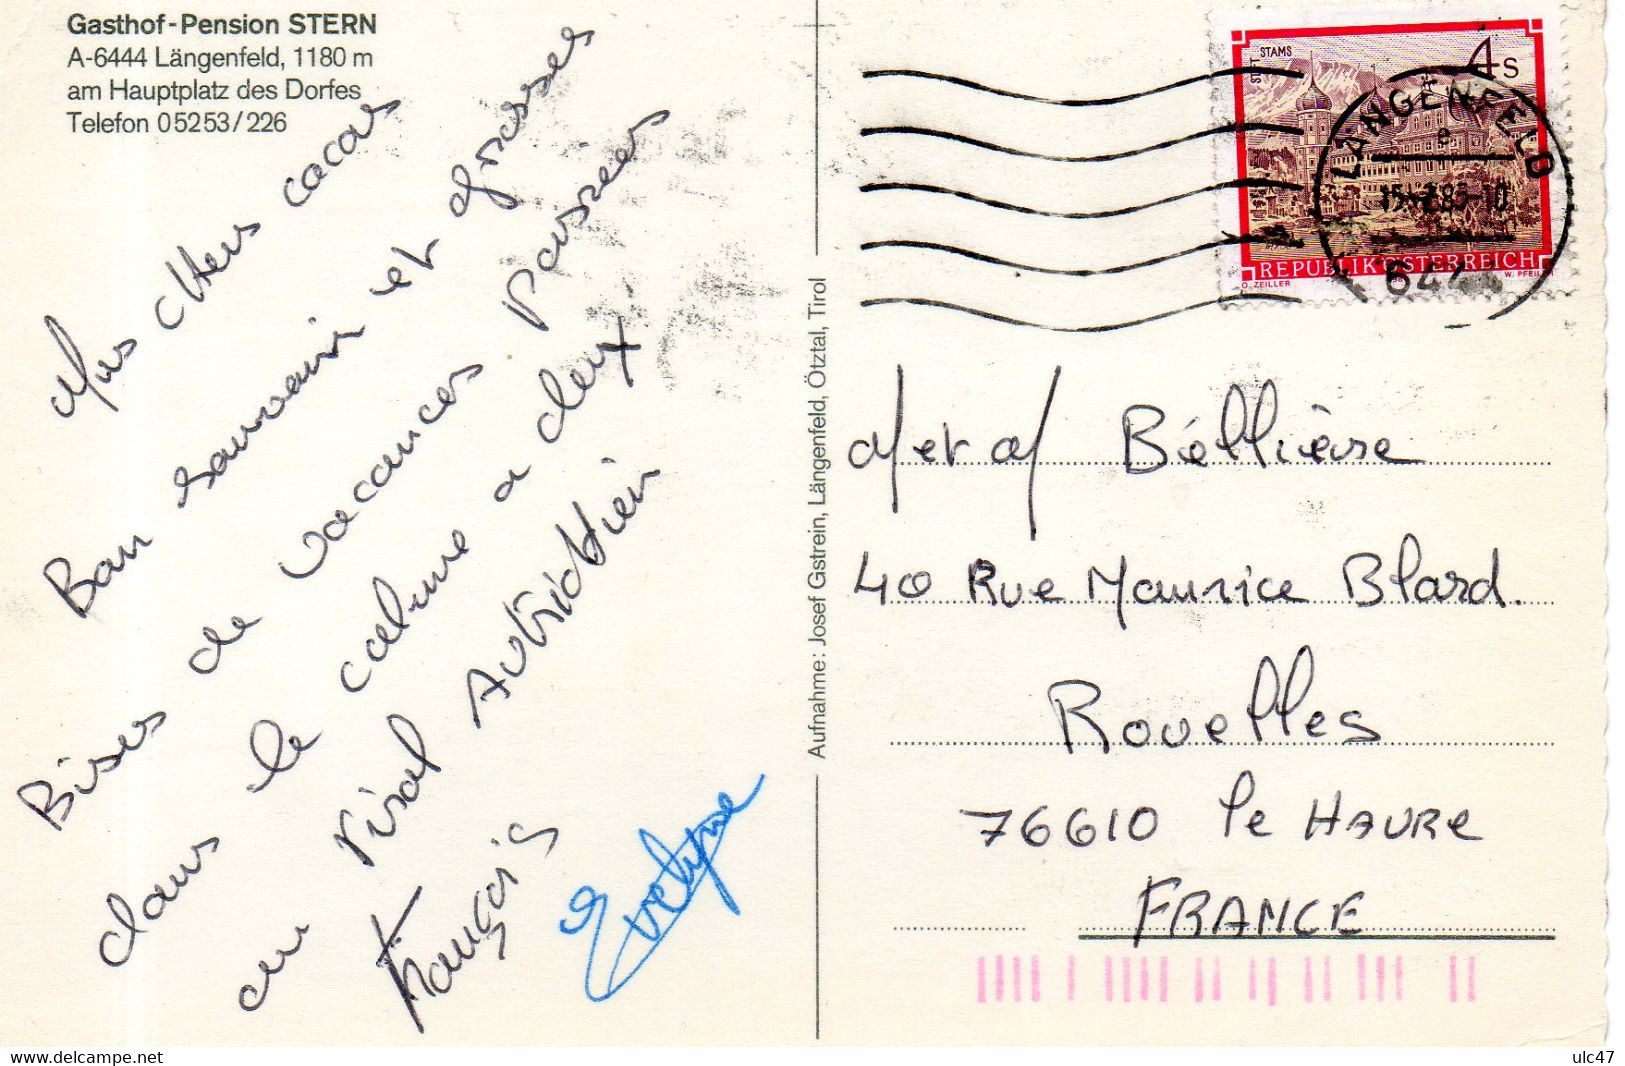 Gasthof-Pension STERN
A-6444 Längenfeld, 1180 m
am Hauptplatz des Dorfes
Telefon 05253/226
Mes chers cocos
Bon souvenir et grosses
Bises de vacances passées
dans le calme a deux
au Tirol Autrichien
François
Evelyne
Aufnahme: Josef Gstrein, Längenfeld, Ötztal, Tirol
STIFT STAMS
4 S
REPUBLIK ÖSTERREICH
O. ZEILLER
W. PFEILER
LÄNGENFELD
e
6444
M et M Béllière
40 Rue Maurice Blard.
Rouelles
76610 le HAVRE
FRANCE
delcampe.net
ulc47